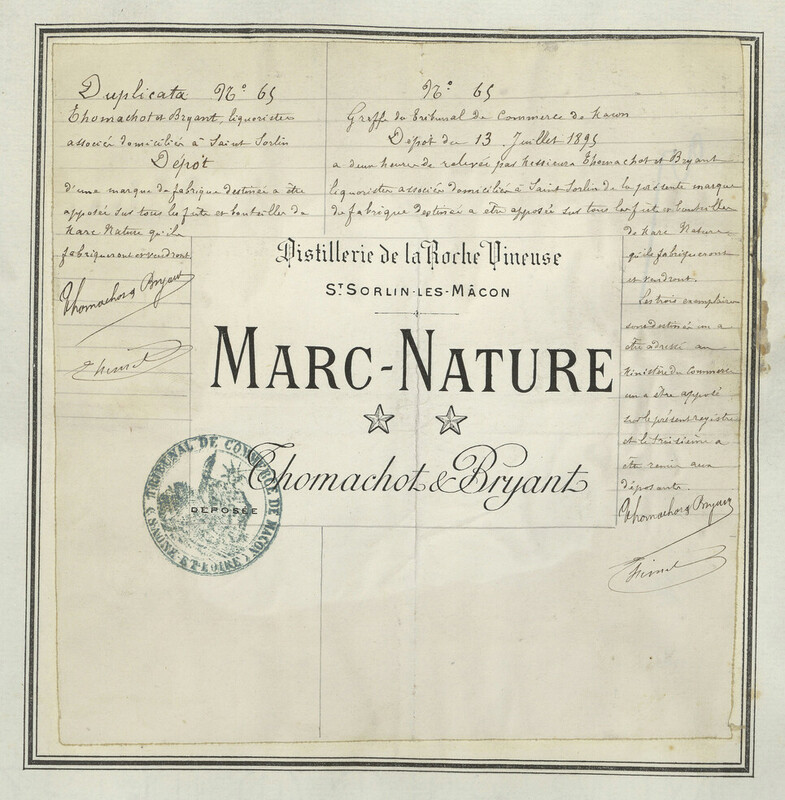 Duplicata N° 65
Thomachot et Bryant, liquoristes
associés domiciliés à Saint Sorlin
Dépôt
d'une marque de fabrique destinée à être
apposée sur tous les fûts et bouteilles de
Marc Nature qu'ils
fabriqueront et vendront
Thomachot & Bryant
N° 65
Greffe du Tribunal de Commerce de Macon
Dépôt du 13 Juillet 1895
a deux heures de relevée par Messieurs Thomachot et Bryant
liquoristes associés domiciliés à Saint Sorlin de la présente marque
de fabrique destinée a être apposée sur tous les fûts et bouteilles
de Marc Nature
qu'ils fabriqueront
et vendront.
Les trois exemplaires
un a
été adressé au
Ministère du Commerce
un a être apposé
sur le présent registre
et le troisième a
été remis aux
déposants.
Thomachot & Bryant
Distillerie de la Roche Vineuse
ST SORLIN-LES-MÂCON
MARC-NATURE
Thomachot & Bryant
DÉPOSÉE
TRIBUNAL DE COMMERCE DE MACON
(SAONE ET LOIRE)